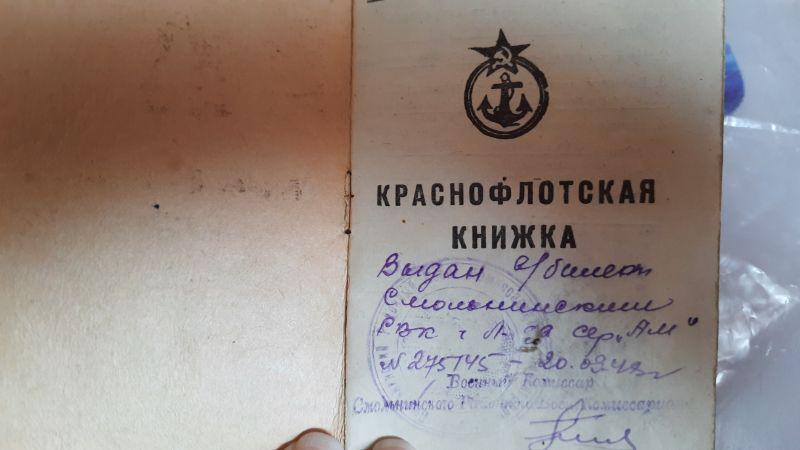 КРАСНОФЛОТСКАЯ
КНИЖКА
Выдан в/билет
Смольнинским
РВК г Л-да сер „АМ"
N 275145 - 20.
Военный Комиссар
Смольнинского